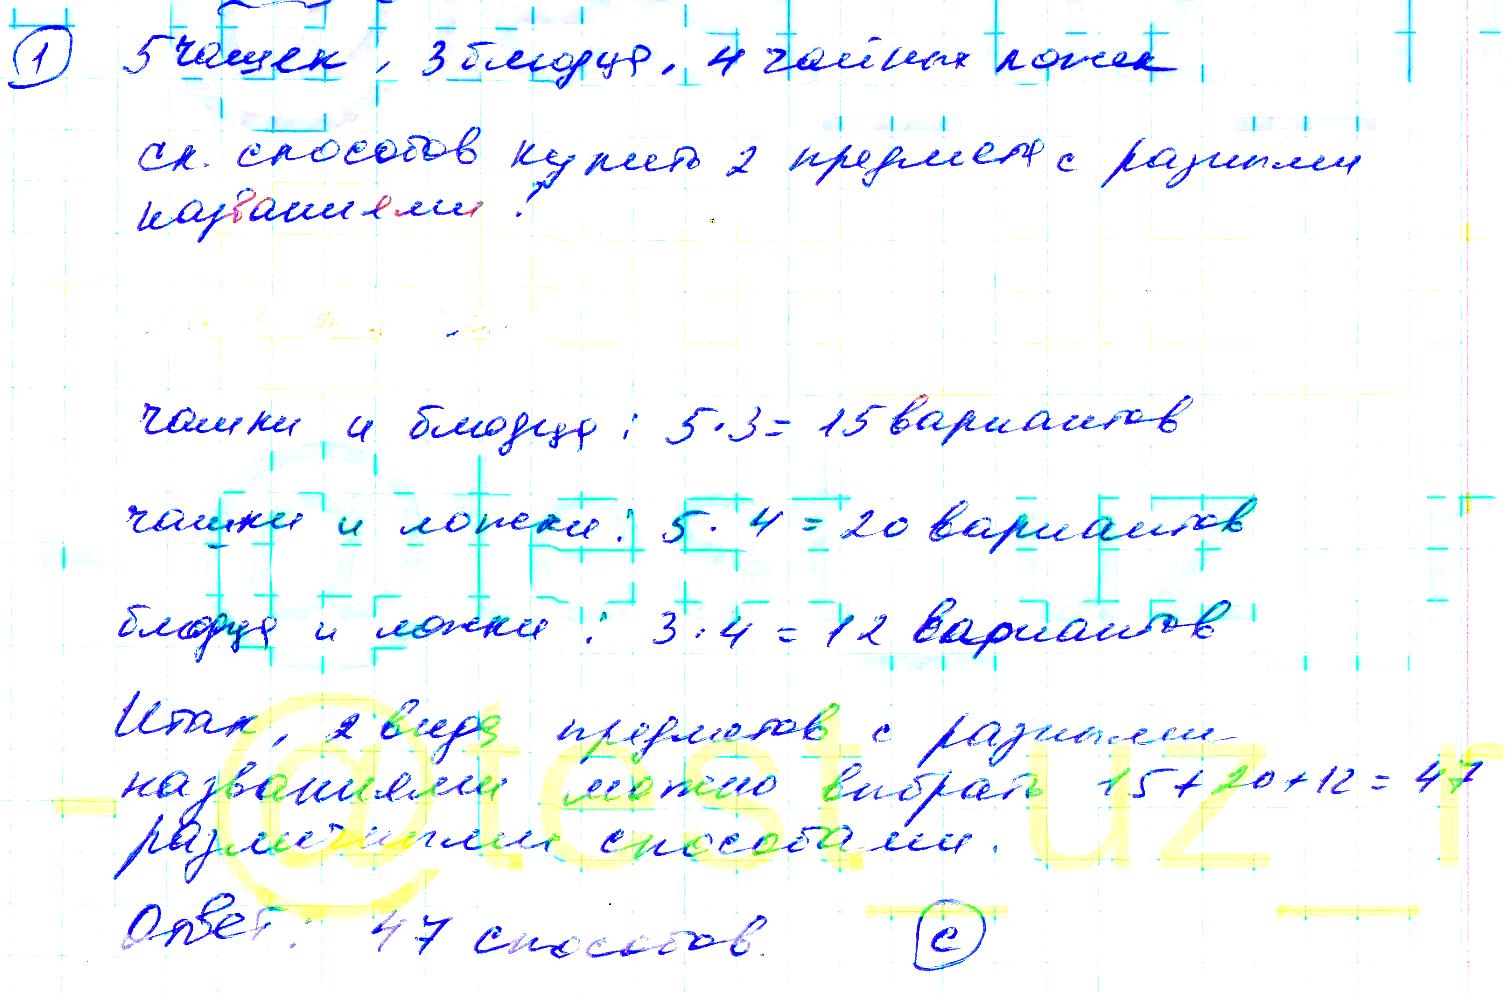 1 5 чашек, 3 блюдца, 4 чайных ложек
ск. способов купить 2 предмета с разными
названиями?
чашки и блюдца: 5·3=15 вариантов
чашки и ложки: 5·4=20 вариантов
блюдца и ложки: 3·4=12 вариантов
Итак, 2 вида предметов с разными
названиями можно выбрать 15+20+12=47
различными способами.
Ответ: 47 способов. C
@test_uz_r